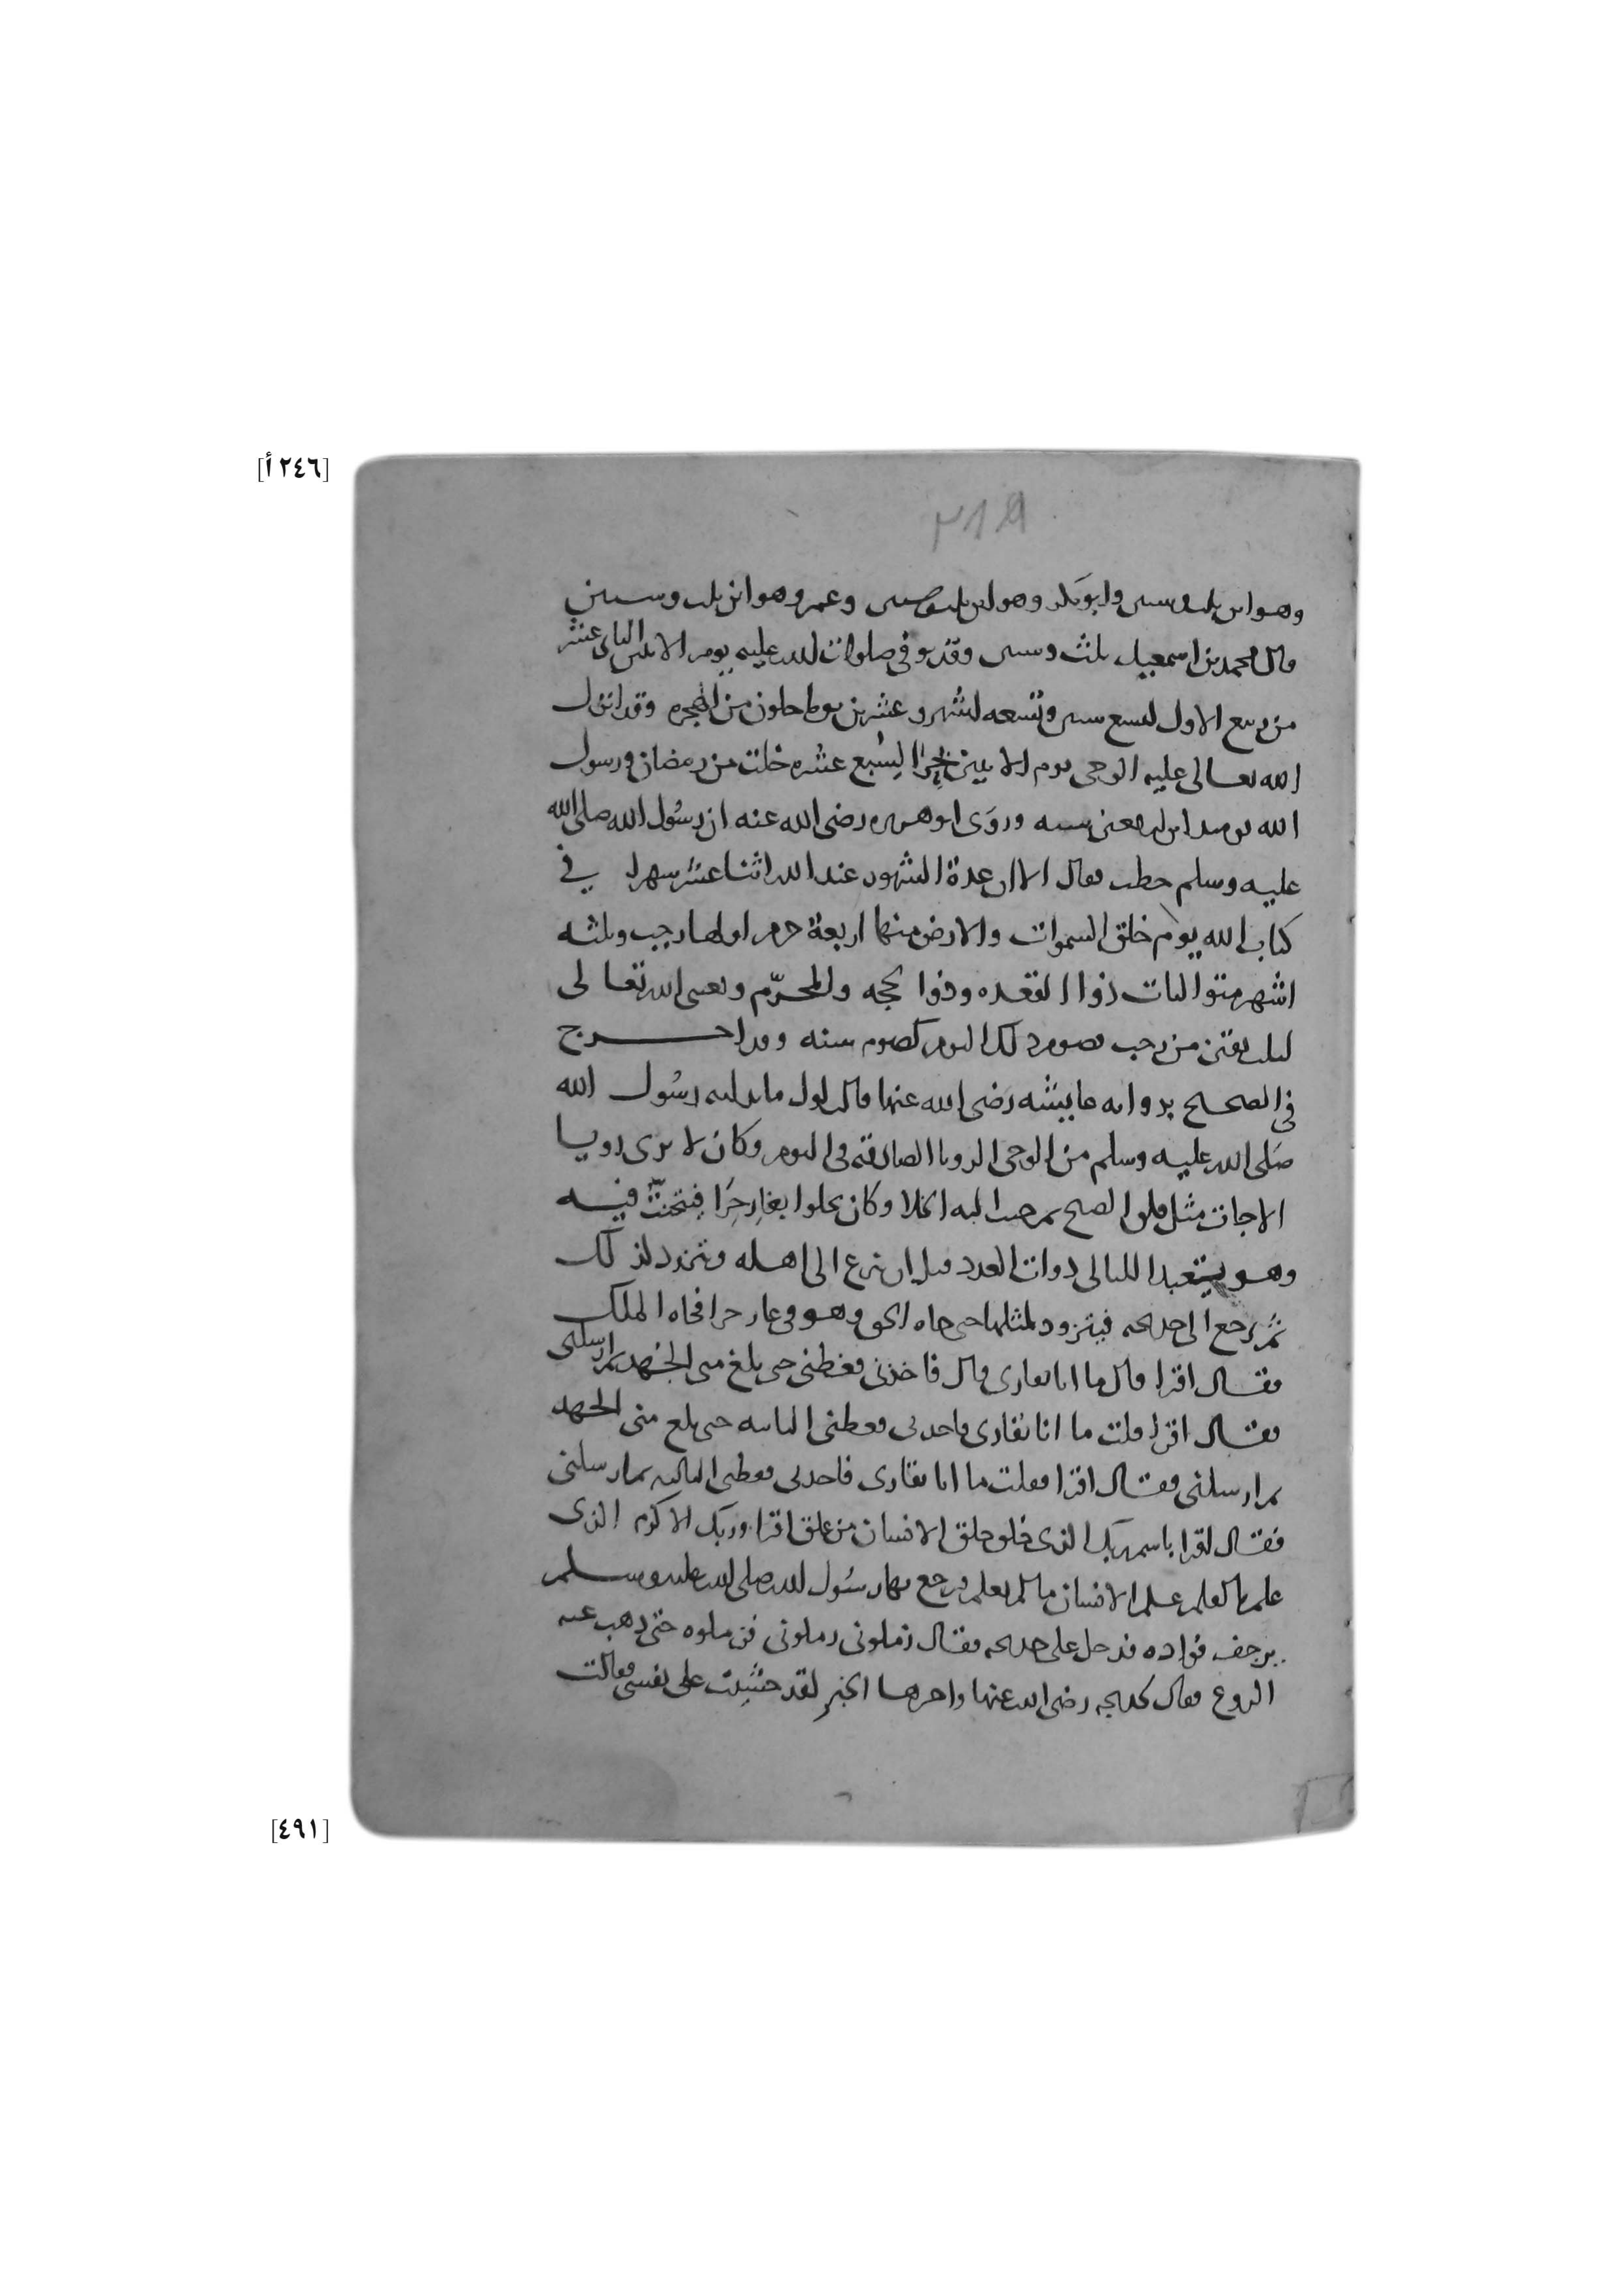 [٢٤٦ أ]
وهو ابن ثلث وستين وابو بكر وهو ابن ثلث وستين وعمر وهو ابن ثلث وستين
قال محمد بن اسمعيل ثلث وستين وقد توفي صلوات الله عليه يوم الاثنين الثاني عشر
من ربيع الاول لتسع سنين وتسعه اشهر وعشرين يوما خلون من الهجره وقد انزل
الله تعالى عليه الوحي يوم الاثنين بحرا لسبع عشره خلت من رمضان ورسول
الله يومئذ ابن اربعين سنه وروى ابو هريره رضى الله عنه ان رسول الله صلى الله
عليه وسلم خطب فقال الا ان عدة الشهور عند الله اثنا عشر شهرا في
كتاب الله يوم خلق السموات والارض منها اربعة حرم اولها رجب وثلثه
اشهر متواليات ذوا القعده وذوا الحجه والمحرّم وبعثني الله تعالى
لثلث بقين من رجب فصوم ذلك اليوم كصوم سنه وقد اخرج
في الصحيح بروايه عايشه رضى الله عنها قالت اول ما بدئ به رسول الله
صلى الله عليه وسلم من الوحي الرويا الصادقة في النوم وكان لا يرى رويا
الا جات مثل فلق الصبح ثم حبب اليه الخلا وكان يخلوا بغار حرا فيتحنّث فيه
وهو يتعبد الليالى دوات العدد قبل ان ينزع الى اهله ويتزود لذلك
ثم يرجع الى خديجه فيتزود لمثلها حتى جاه الحق وهو في غار حرا فجاه الملك
فقال اقرا قال ما انا بقارى قال فاخذنى فغطنى حتى بلغ منى الجهد ثم ارسلنى
فقال اقرا قلت ما انا بقارى فاخذنى فغطنى الثانيه حتى بلغ منى الجهد
ثم ارسلنى فقال اقرا فقلت ما انا بقارى فاخذنى فغطنى الثالثه ثم ارسلنى
فقال اقرا باسم ربك الذى خلق خلق الانسان من علق اقرا وربك الاكرم الذى
علم بالقلم علم الانسان ما لم يعلم فرجع بها رسول الله صلى الله عليه وسلم
يرجف فؤاده فدخل على خديجه فقال زملونى زملونى فزملوه حتى ذهب عنه
الروع فقال لخديجه رضى الله عنها واخبرها الخبر لقد خشيت على نفسى فقالت
[٤٩١]